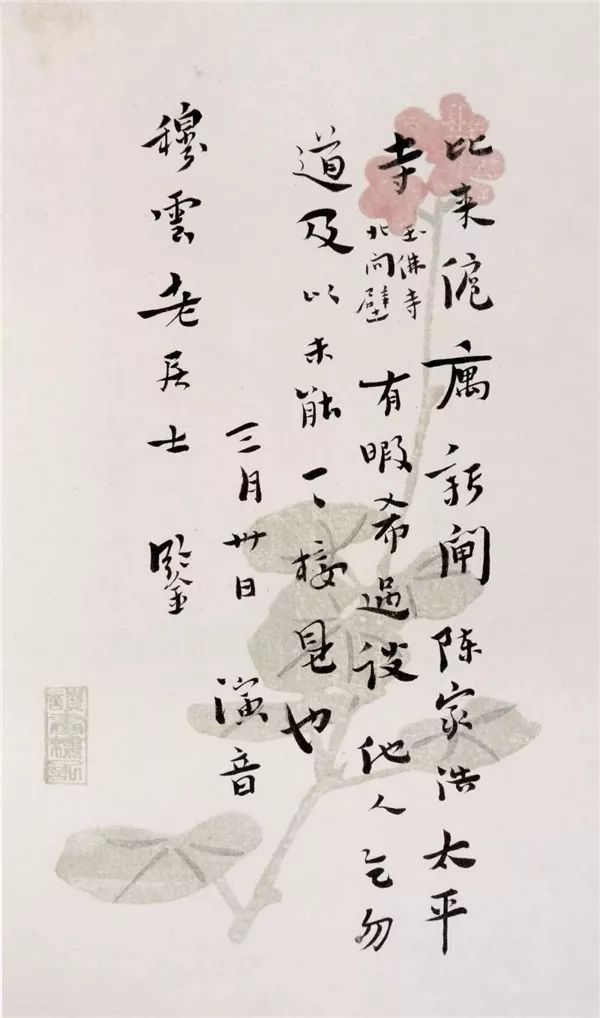 比来滬庽新閘陈家浜太平
寺
玉佛寺
北间壁
有暇希過谈他人乞勿
道及以未能一一接見也
三月卅日 演音
穆雲老居士 鑒